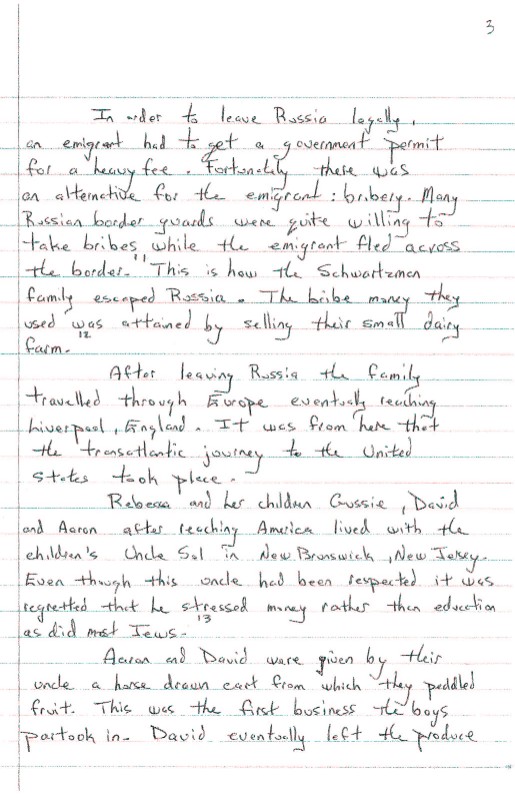 3
In order to leave Russia legally,
an emigrant had to get a government permit
for a heavy fee. Fortunately there was
an alternative for the emigrant: bribery. Many
Russian border guards were quite willing to
take bribes while the emigrant fled across
the border. 11 This is how the Schwartzman
family escaped Russia. The bribe money they
used was attained by selling their small dairy
farm. 12
After leaving Russia the family
travelled through Europe eventually reaching
Liverpool, England. It was from here that
the transatlantic journey to the United
States took place.
Rebecca and her children Gussie, David
and Aaron after reaching America lived with the
children's Uncle Sol in New Brunswick, New Jersey.
Even though this uncle had been respected it was
regretted that he stressed money rather than education
as did most Jews. 13
Aaron and David were given by their
uncle a horse drawn cart from which they peddled
fruit. This was the first business the boys
partook in. David eventually left the produce